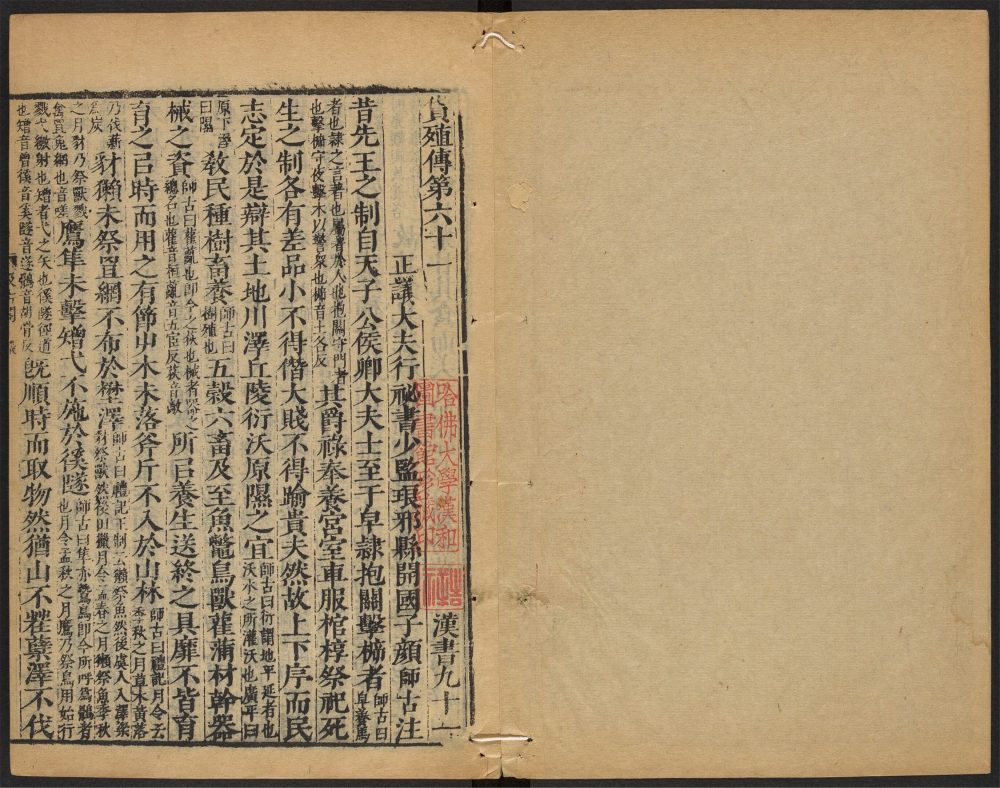 貨殖傳第六十一
漢書九十一
正議大夫行祕書少監琅邪縣開國子顏師古注
昔先王之制自天子公侯卿大夫士至于皁隸抱關擊㯓者師古曰皁養馬
者也隸之言著也屬著於人也抱關守門者也擊㯓守夜擊木以警衆也㯓音土各反其爵祿奉養宮室車服棺椁祭祀死
生之制各有差品小不得僭大賤不得踰貴夫然故上下序而民
志定於是辯其土地川澤丘陵衍沃原隰之宜師古曰衍謂地平延者也沃水之所灌沃也廣平曰
原下溼曰隰敎民種樹畜養師古曰樹殖也五穀六畜及至魚鼈鳥獸雚蒲材幹器
械之資師古曰雚薍也即今之荻也械者器之總名也雚音桓薍音五宦反荻音敵所㠯養生送終之具靡不皆育
育之㠯時而用之有節屮木未落斧斤不入於山林師古曰禮記月令云季秋之月草木黃落
乃伐薪爲炭豺獺未祭罝網不布於壄澤師古曰禮記王制云獺祭魚然後虞人入澤梁豺祭獸然後田獵月令孟春之月獺祭魚季秋
之月豺乃祭獸戮禽罝兔網也音嗟鷹隼未擊矰弋不施於徯隧師古曰隼亦鷙鳥即今所呼爲鶻者也月令孟秋之月鷹乃祭鳥用始行
戮弋繳射也矰者弋之矢也徯隧徑道也矰音曾徯音奚隧音遂鶻音胡骨反旣順時而取物然猶山不茬蘖澤不伐
哈佛大學漢和
圖書館珍藏印